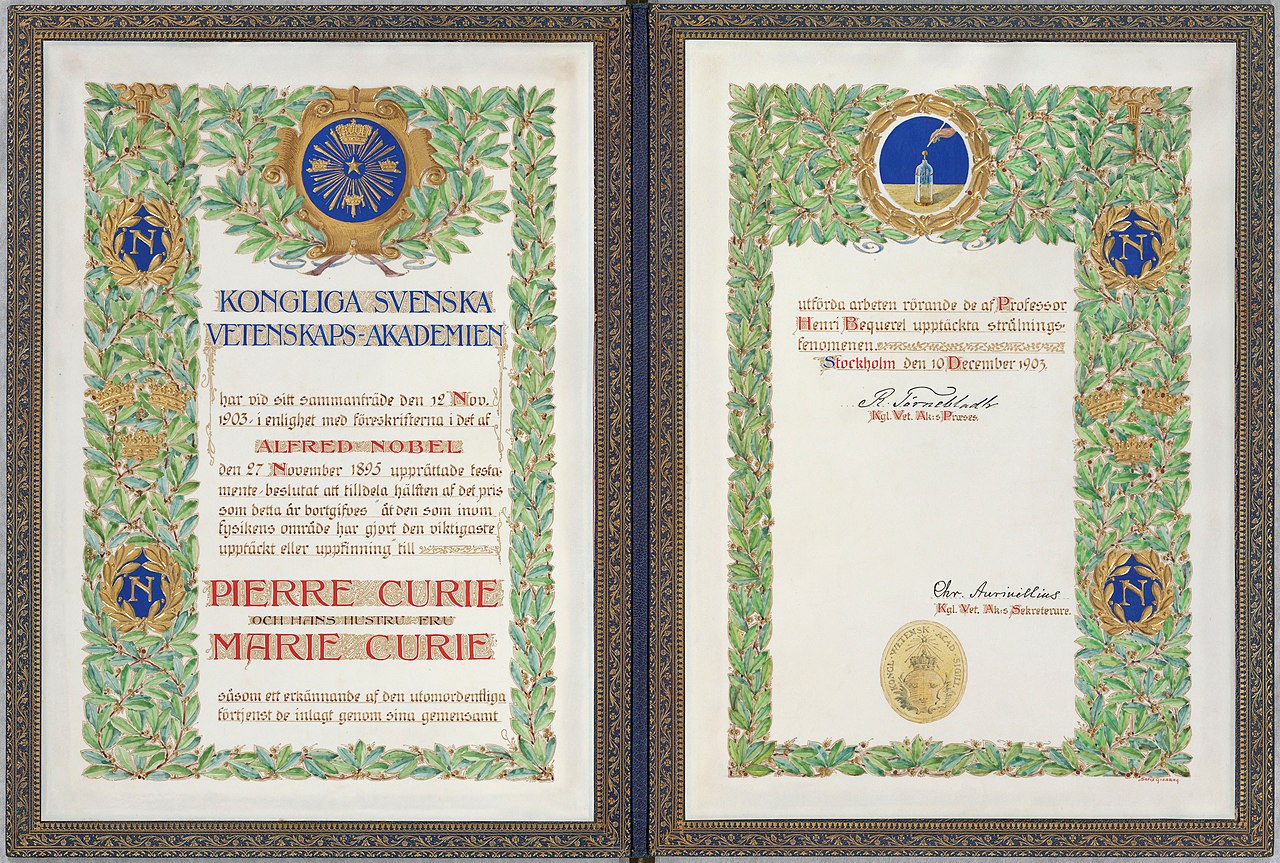 N
KONGLIGA SVENSKA
VETENSKAPS-AKADEMIEN
har vid sitt sammanträde den 12 Nov.
1903, i enlighet med föreskrifterna i det af
ALFRED NOBEL
den 27 November 1895 upprättade testa-
mente, beslutat att tilldela hälften af det pris
som detta år bortgifves "åt den som inom
fysikens område har gjort den viktigaste
upptäckt eller uppfinning" till
N
PIERRE CURIE
OCH HANS HUSTRU FRU
MARIE CURIE
såsom ett erkännande af den utomordentliga
förtjenst de inlagt genom sina gemensamt
N
utförda arbeten rörande de af Professor
Henri Bequerel upptäckta strålnings-
fenomenen.
Stockholm den 10 December 1903.
R. Törnebladh
Kgl. Vet. Ak:s Præses.
N
Chr. Aurivillius
Kgl. Vet. Ak:s Sekreterare.
KONGL. VETENSK. ACAD. SIGILL